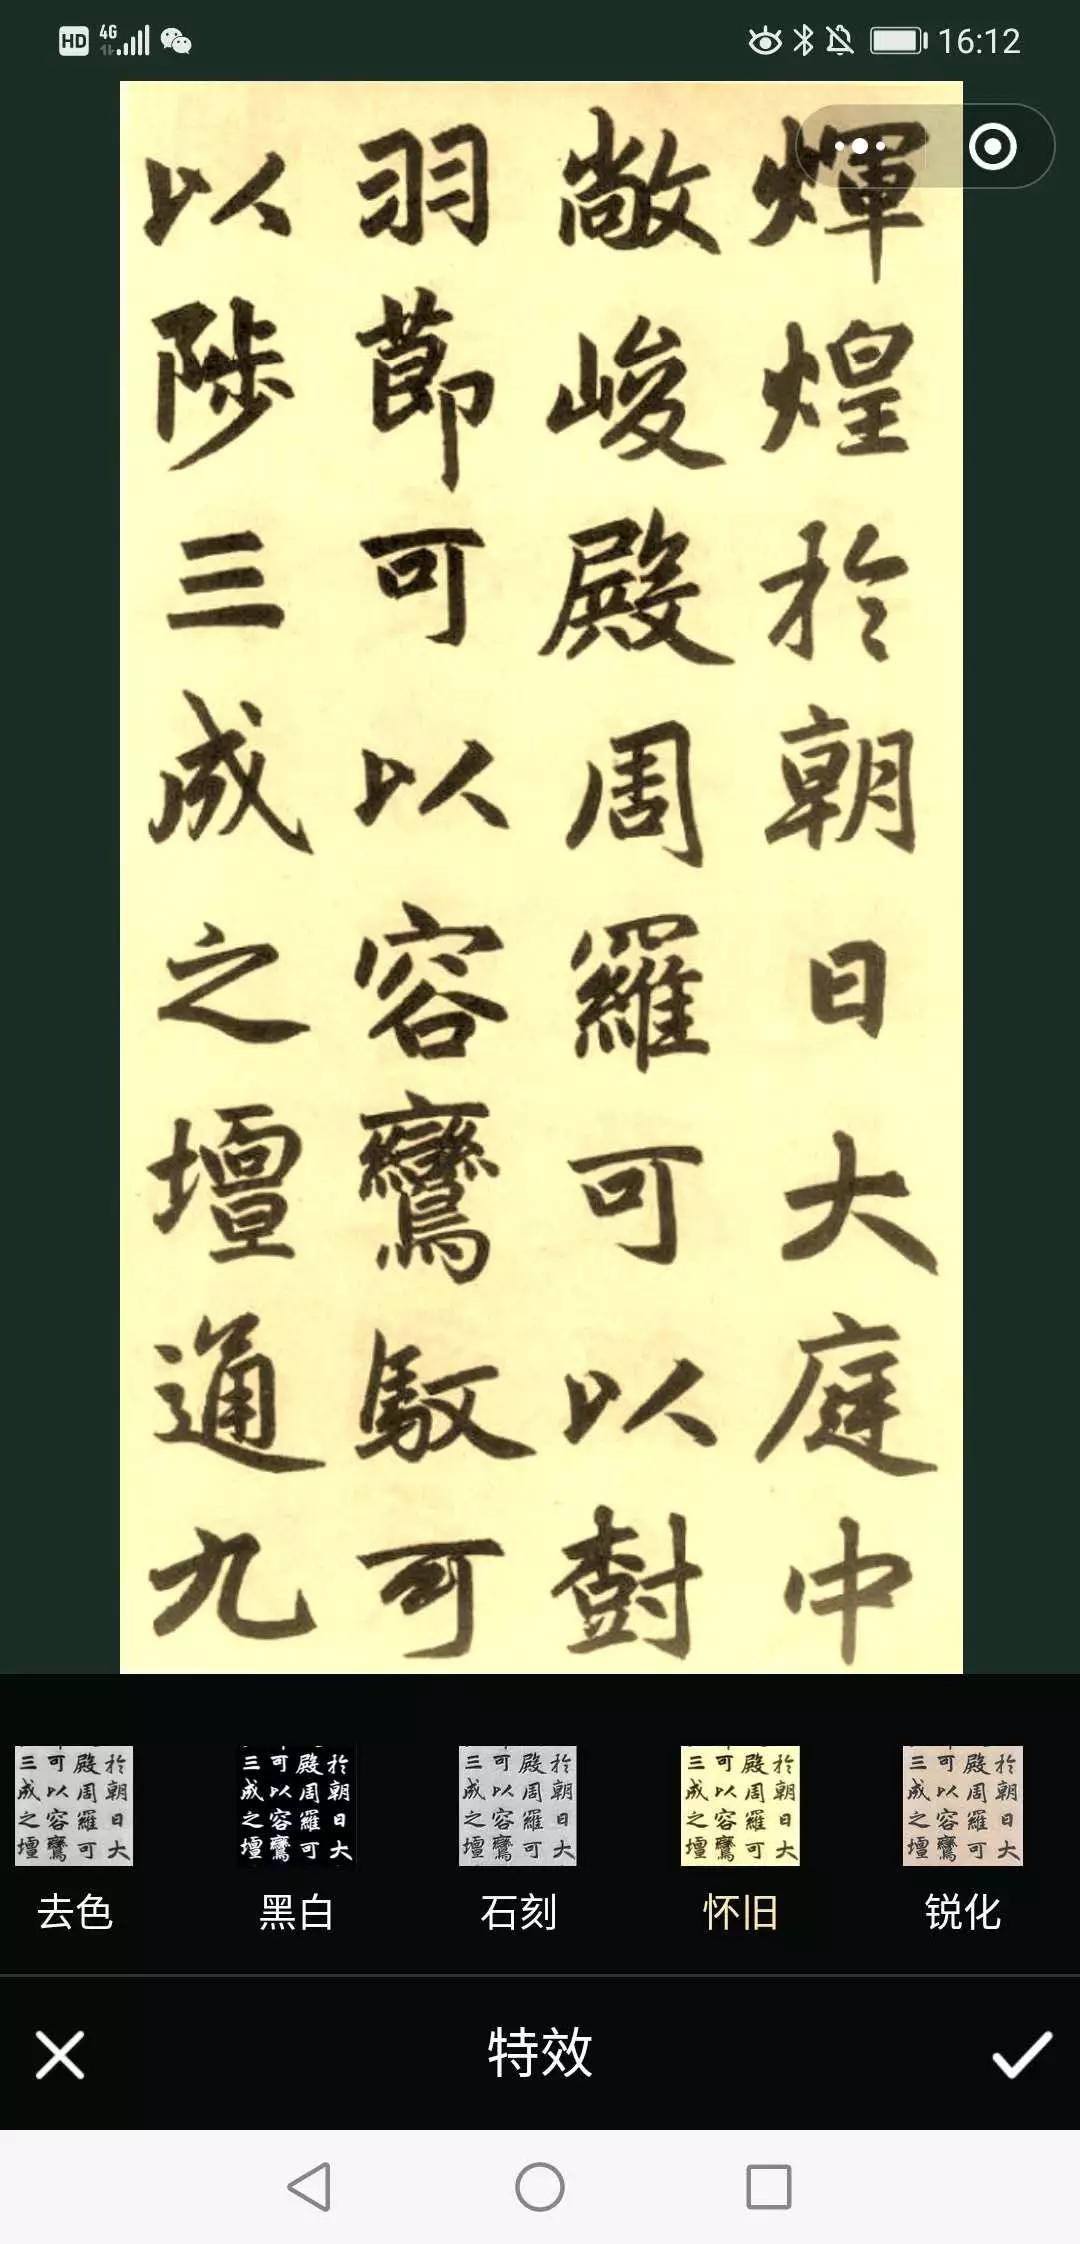 HD 4G 16:12
輝煌於朝日大庭中
敞峻殿周羅可以樹
羽節可以容鸞馭可
以陟三成之壇通九
三可殿於
成以周朝
之容羅日
壇鸞可大
三可殿於
成以周朝
之容羅日
壇鸞可大
三可殿於
成以周朝
之容羅日
壇鸞可大
三可殿於
成以周朝
之容羅日
壇鸞可大
三可殿於
成以周朝
之容羅日
壇鸞可大
去色 黑白 石刻 怀旧 锐化
特效